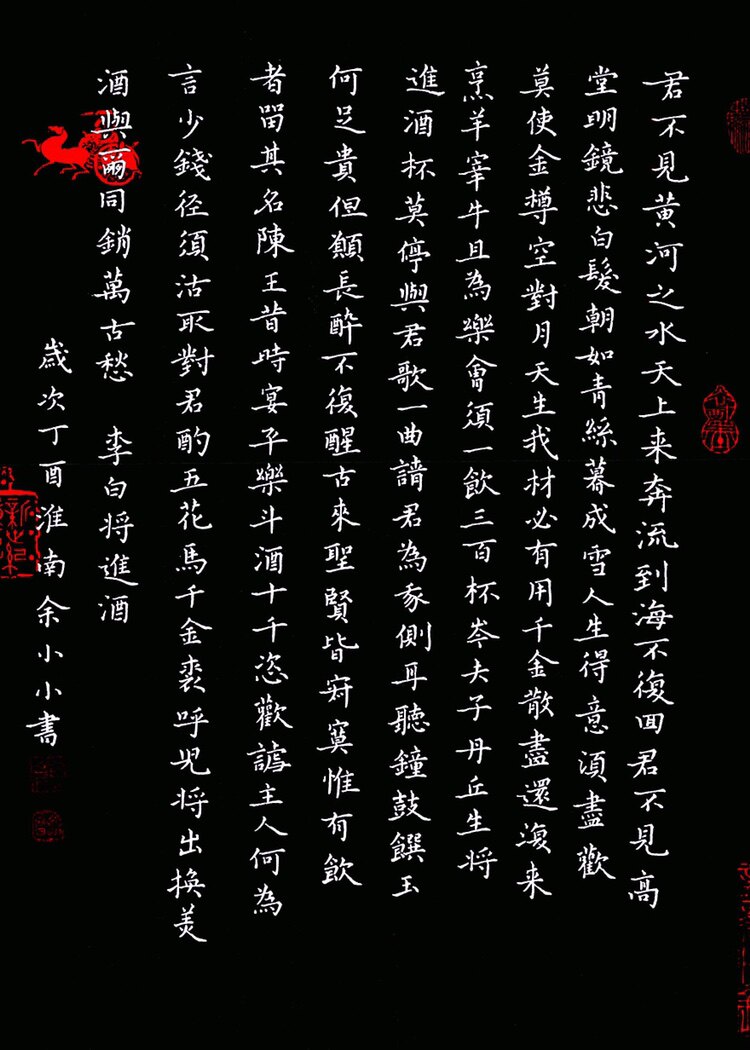 君不見黄河之水天上来奔流到海不復回君不見高
堂明鏡悲白髮朝如青絲暮成雪人生得意須盡歡
莫使金樽空對月天生我材必有用千金散盡還復来
烹羊宰牛且為樂會須一飲三百杯岑夫子丹丘生将
進酒杯莫停與君歌一曲請君為我側耳聽鐘鼓饌玉
何足貴但願長醉不復醒古來聖賢皆寂寞惟有飲
者留其名陳王昔時宴平樂斗酒十千恣歡謔主人何為
言少錢径須沽取對君酌五花馬千金裘呼児将出換美
酒與爾同銷萬古愁 李白将進酒
歲次丁酉淮南余小小書